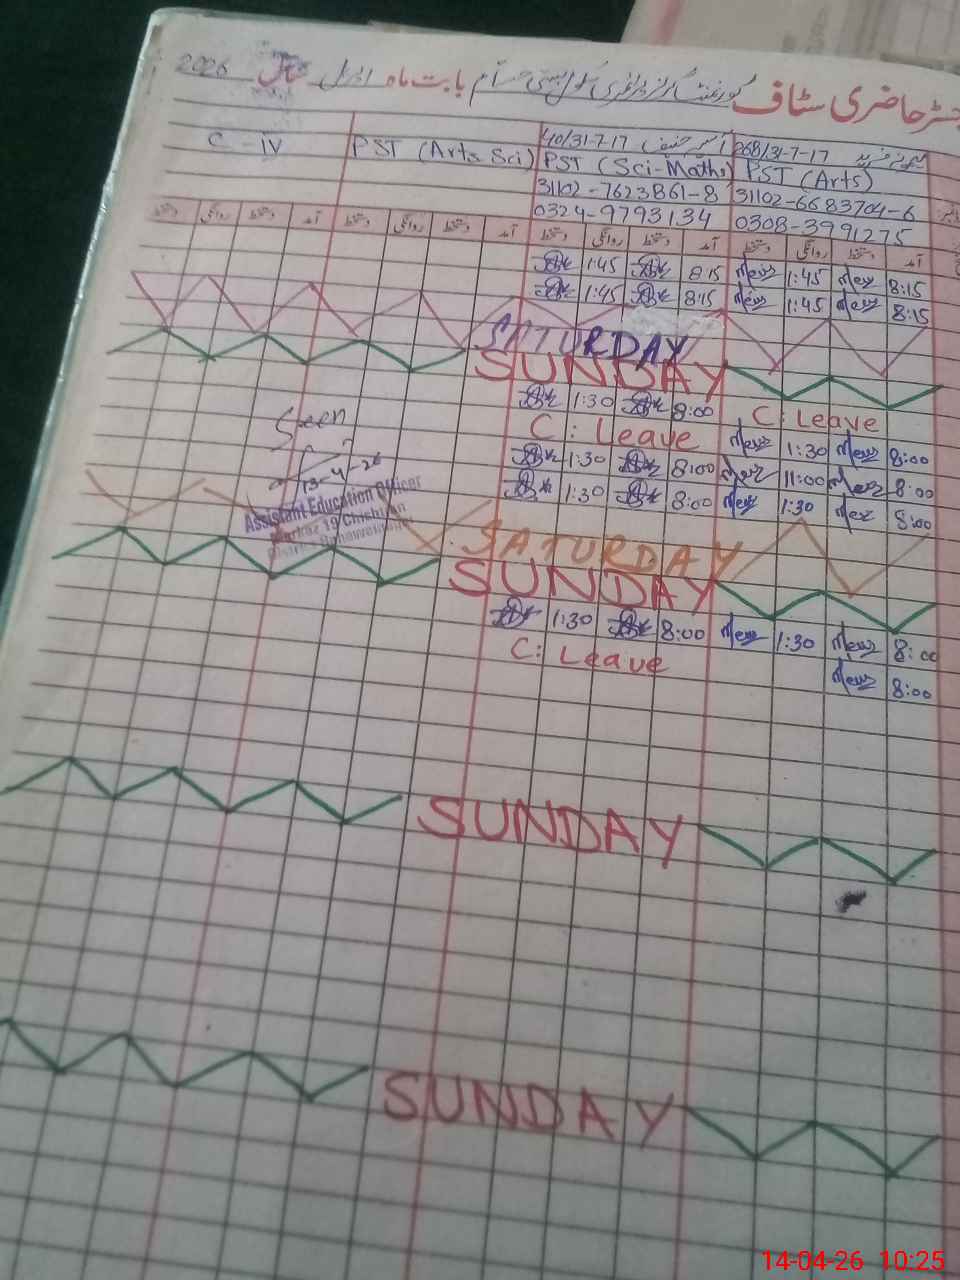 رجسٹر حاضری سٹاف گورنمنٹ گرلز پرائمری سکول بستی بابت ماہ اپریل سال 2026
C - IV
PST (Arts Sci)
40/31-7-17
PST (Sci-Maths)
31102-7623861-8
0324-9793134
268/31-7-17
PST (Arts)
31102-6683704-6
0308-3991275
دستخط روانگی دستخط آمد دستخط روانگی دستخط آمد دستخط روانگی دستخط آمد دستخط روانگی دستخط آمد
1:45 8:15 1:45 8:15
1:45 8:15 1:45 8:15
SATURDAY
SUNDAY
1:30 8:00 C: Leave
C: Leave 1:30 8:00
1:30 8:00 11:00 8:00
1:30 8:00 1:30 8:00
Seen
13-4-26
Assistant Education Officer
Markaz 19 Chishtian
SATURDAY
SUNDAY
1:30 8:00 1:30 8:00
C: Leave 8:00
SUNDAY
SUNDAY
14-04-26 10:25